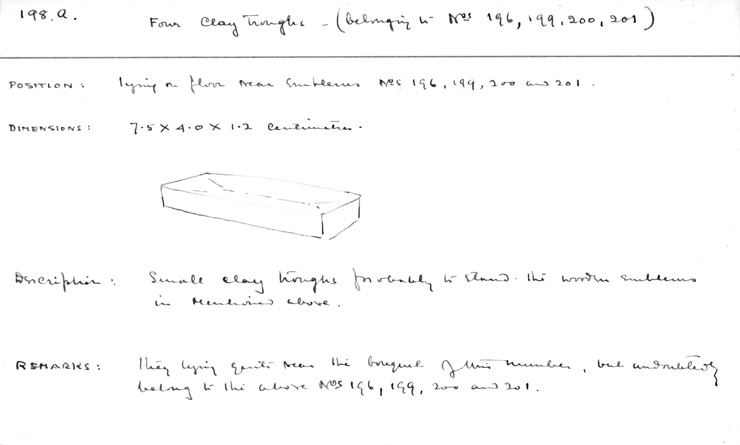 198.a. Four clay troughs - (belonging to Nos 196, 199, 200, 201)
POSITION: lying on floor near emblems Nos 196, 199, 200 and 201.
DIMENSIONS: 7.5 X 4.0 X 1.2 Centimetres.
Description: Small clay troughs probably to stand the wooden emblems
in mentioned above.
REMARKS: They lying quite near the bouquet of this number, but undoubtedly
belong to the above Nos 196, 199, 200 and 201.